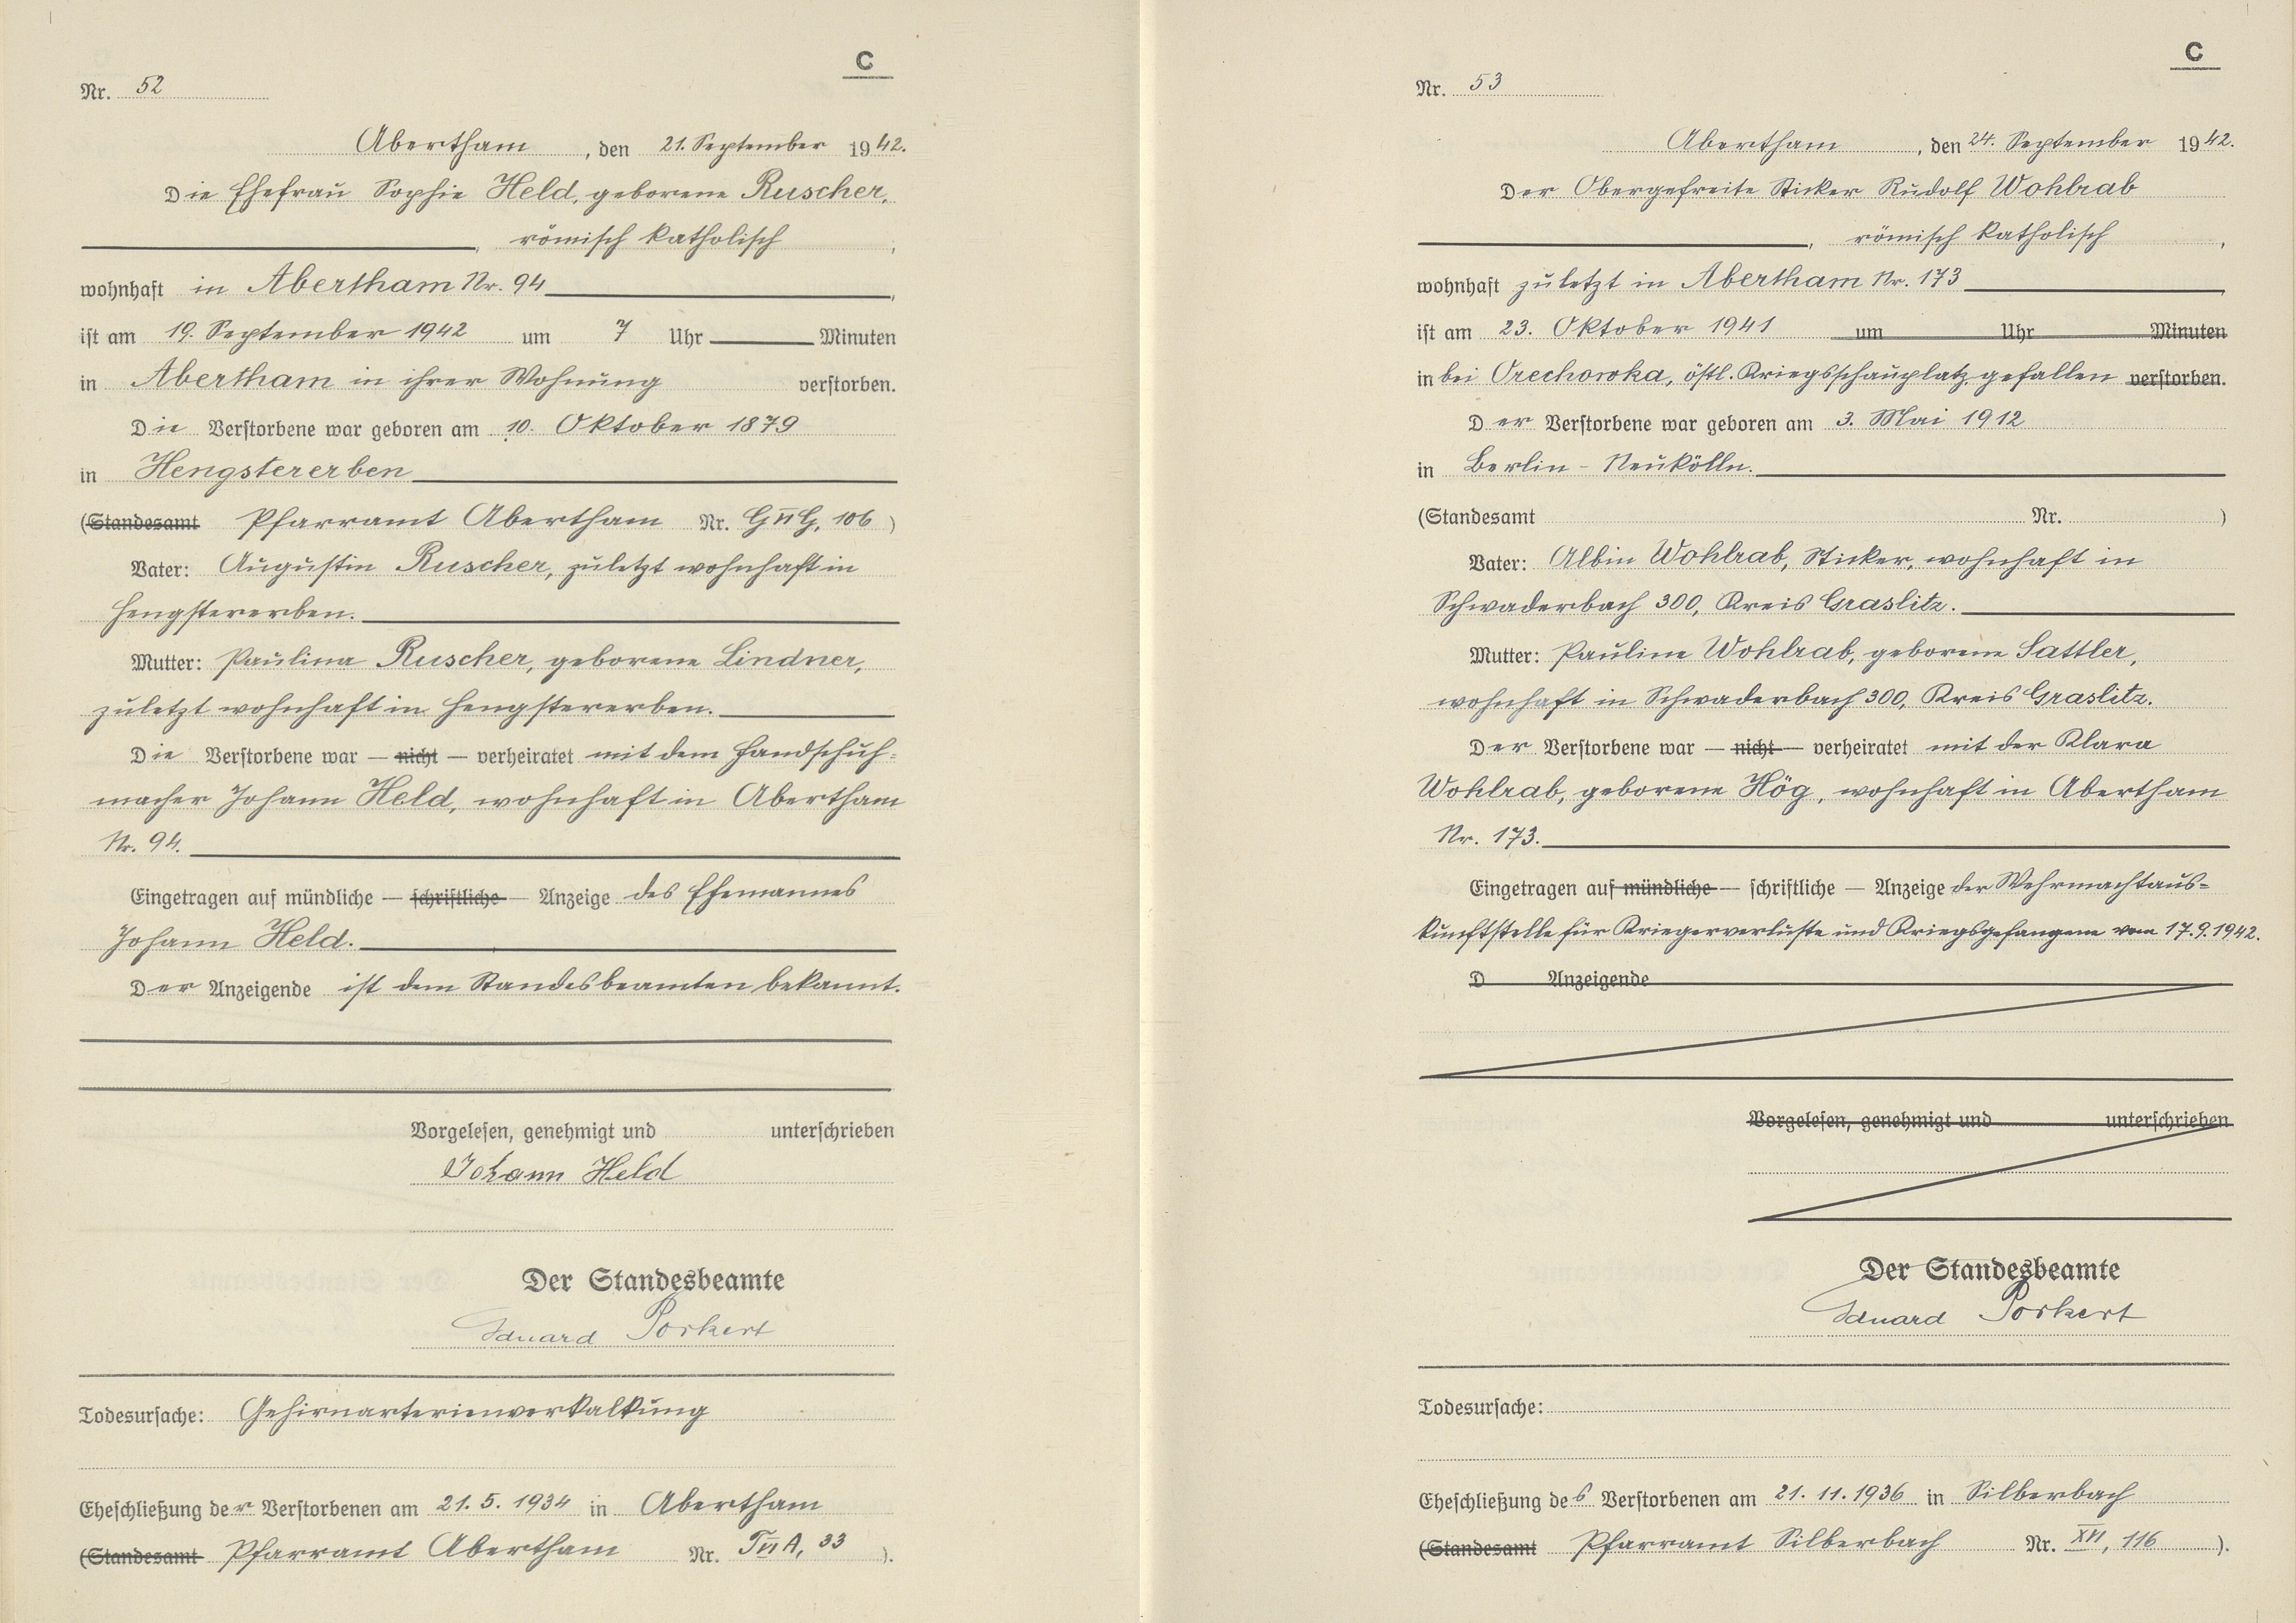 C
Nr. 52
Abertham, den 21. September 1942.
Die Ehefrau Sophie Held, geborene Ruscher,
, römisch katholisch,
wohnhaft in Abertham Nr. 94,
ist am 19. September 1942 um 7 Uhr Minuten
in Abertham in ihrer Wohnung verstorben.
Die Verstorbene war geboren am 10. Oktober 1879
in Hengstererben
(Standesamt Pfarramt Abertham Nr. G II G, 106)
Vater: Augustin Ruscher, zuletzt wohnhaft in
Hengstererben.
Mutter: Paulina Ruscher, geborene Lindner,
zuletzt wohnhaft in Hengstererben.
Die Verstorbene war — nicht — verheiratet mit dem Handschuh-
macher Johann Held, wohnhaft in Abertham
Nr. 94.
Eingetragen auf mündliche — schriftliche — Anzeige des Ehemannes
Johann Held.
Der Anzeigende ist dem Standesbeamten bekannt.
Vorgelesen, genehmigt und unterschrieben
Johann Held
Der Standesbeamte
Eduard Porkert
Todesursache: Gehirnarterienverkalkung
Eheschließung der Verstorbenen am 21.5.1934 in Abertham
(Standesamt Pfarramt Abertham Nr. T II A, 33).
C
Nr. 53
Abertham, den 24. September 1942.
Der Obergefreite Sticker Rudolf Wohlrab
, römisch katholisch,
wohnhaft zuletzt in Abertham Nr. 173,
ist am 23. Oktober 1941 um Uhr Minuten
in bei Orechowka, östl. Kriegsschauplatz gefallen verstorben.
Der Verstorbene war geboren am 3. Mai 1912
in Berlin-Neukölln.
(Standesamt Nr. )
Vater: Albin Wohlrab, Sticker, wohnhaft in
Schwaderbach 300, Kreis Graslitz.
Mutter: Pauline Wohlrab, geborene Sattler,
wohnhaft in Schwaderbach 300, Kreis Graslitz.
Der Verstorbene war — nicht — verheiratet mit der Klara
Wohlrab, geborene Hög, wohnhaft in Abertham
Nr. 173.
Eingetragen auf mündliche — schriftliche — Anzeige der Wehrmachtaus-
kunftstelle für Kriegerverluste und Kriegsgefangene vom 17.9.1942.
D Anzeigende
Vorgelesen, genehmigt und unterschrieben
Der Standesbeamte
Eduard Porkert
Todesursache:
Eheschließung des Verstorbenen am 21.11.1936 in Silberbach
(Standesamt Pfarramt Silberbach Nr. XVI, 116).